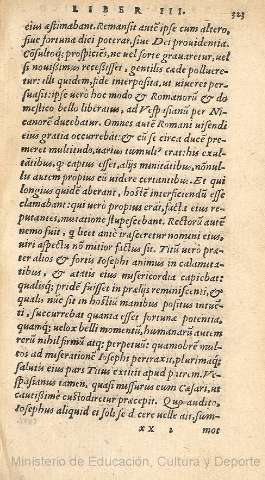 LIBER III. 323
eius æstimabant. Remansit autē ipse cum altero,
siue fortuna dici poterat, siue Dei prouidentia.
Cōsultoq́; prospiciēs, ne uel sorte grauaretur, uel
si nouissimus recessisset, gentilis cæde pollueretur:
illi quidem, fide interposita, ut uiueret persuasit:
ipse uerò hoc modo & Romanorū & domestico
bello liberatus, ad Vespasianū per Nicanorē
ducebatur. Omnes autē Romani uisendi
eius gratia occurrebāt: & cū se circa ducē premeret
multitudo, uarius tumultꝰ erat: his exultātibus,
ꝙ captus esset, alijs minitātibus, nōnullis
autem propius eū uidere certantibus. Et qui
longius quidē aberant, hostē interficiendū esse
clamabant: qui uerò propius erāt, facta eius reputantes,
mutatione stupescebant. Rectorū autē
nemo fuit, ꝗ licet antè irasceretur nomini eius,
uiri aspectu nō mitior factus sit. Titū uerò præter
alios & fortis Iosephi animus in calamitatibus,
& ætatis eius misericordia capiebat:
qualisq́; pridē fuisset in prælijs reminiscenti, &
qualē nūc sit in hostiū manibus positus intuenti,
succurrebat quanta esset fortunæ potentia,
quamq́; uelox belli momentū, humanarū autem
rerū nihil firmū atq́; perpetuū: quamobrē multos
ad miserationē Iosephi pertraxit, plurimaq́;
salutis eius pars Titus extitit apud patrem. Vespasianus
tamen, quasi missurus eum Cæsari, ut
cautissime custodiretur præcepit. Quo audito,
Iosephus aliquid ei soli se dicere uelle ait. sum-
XX 2 mot
Ministerio de Educación, Cultura y Deporte